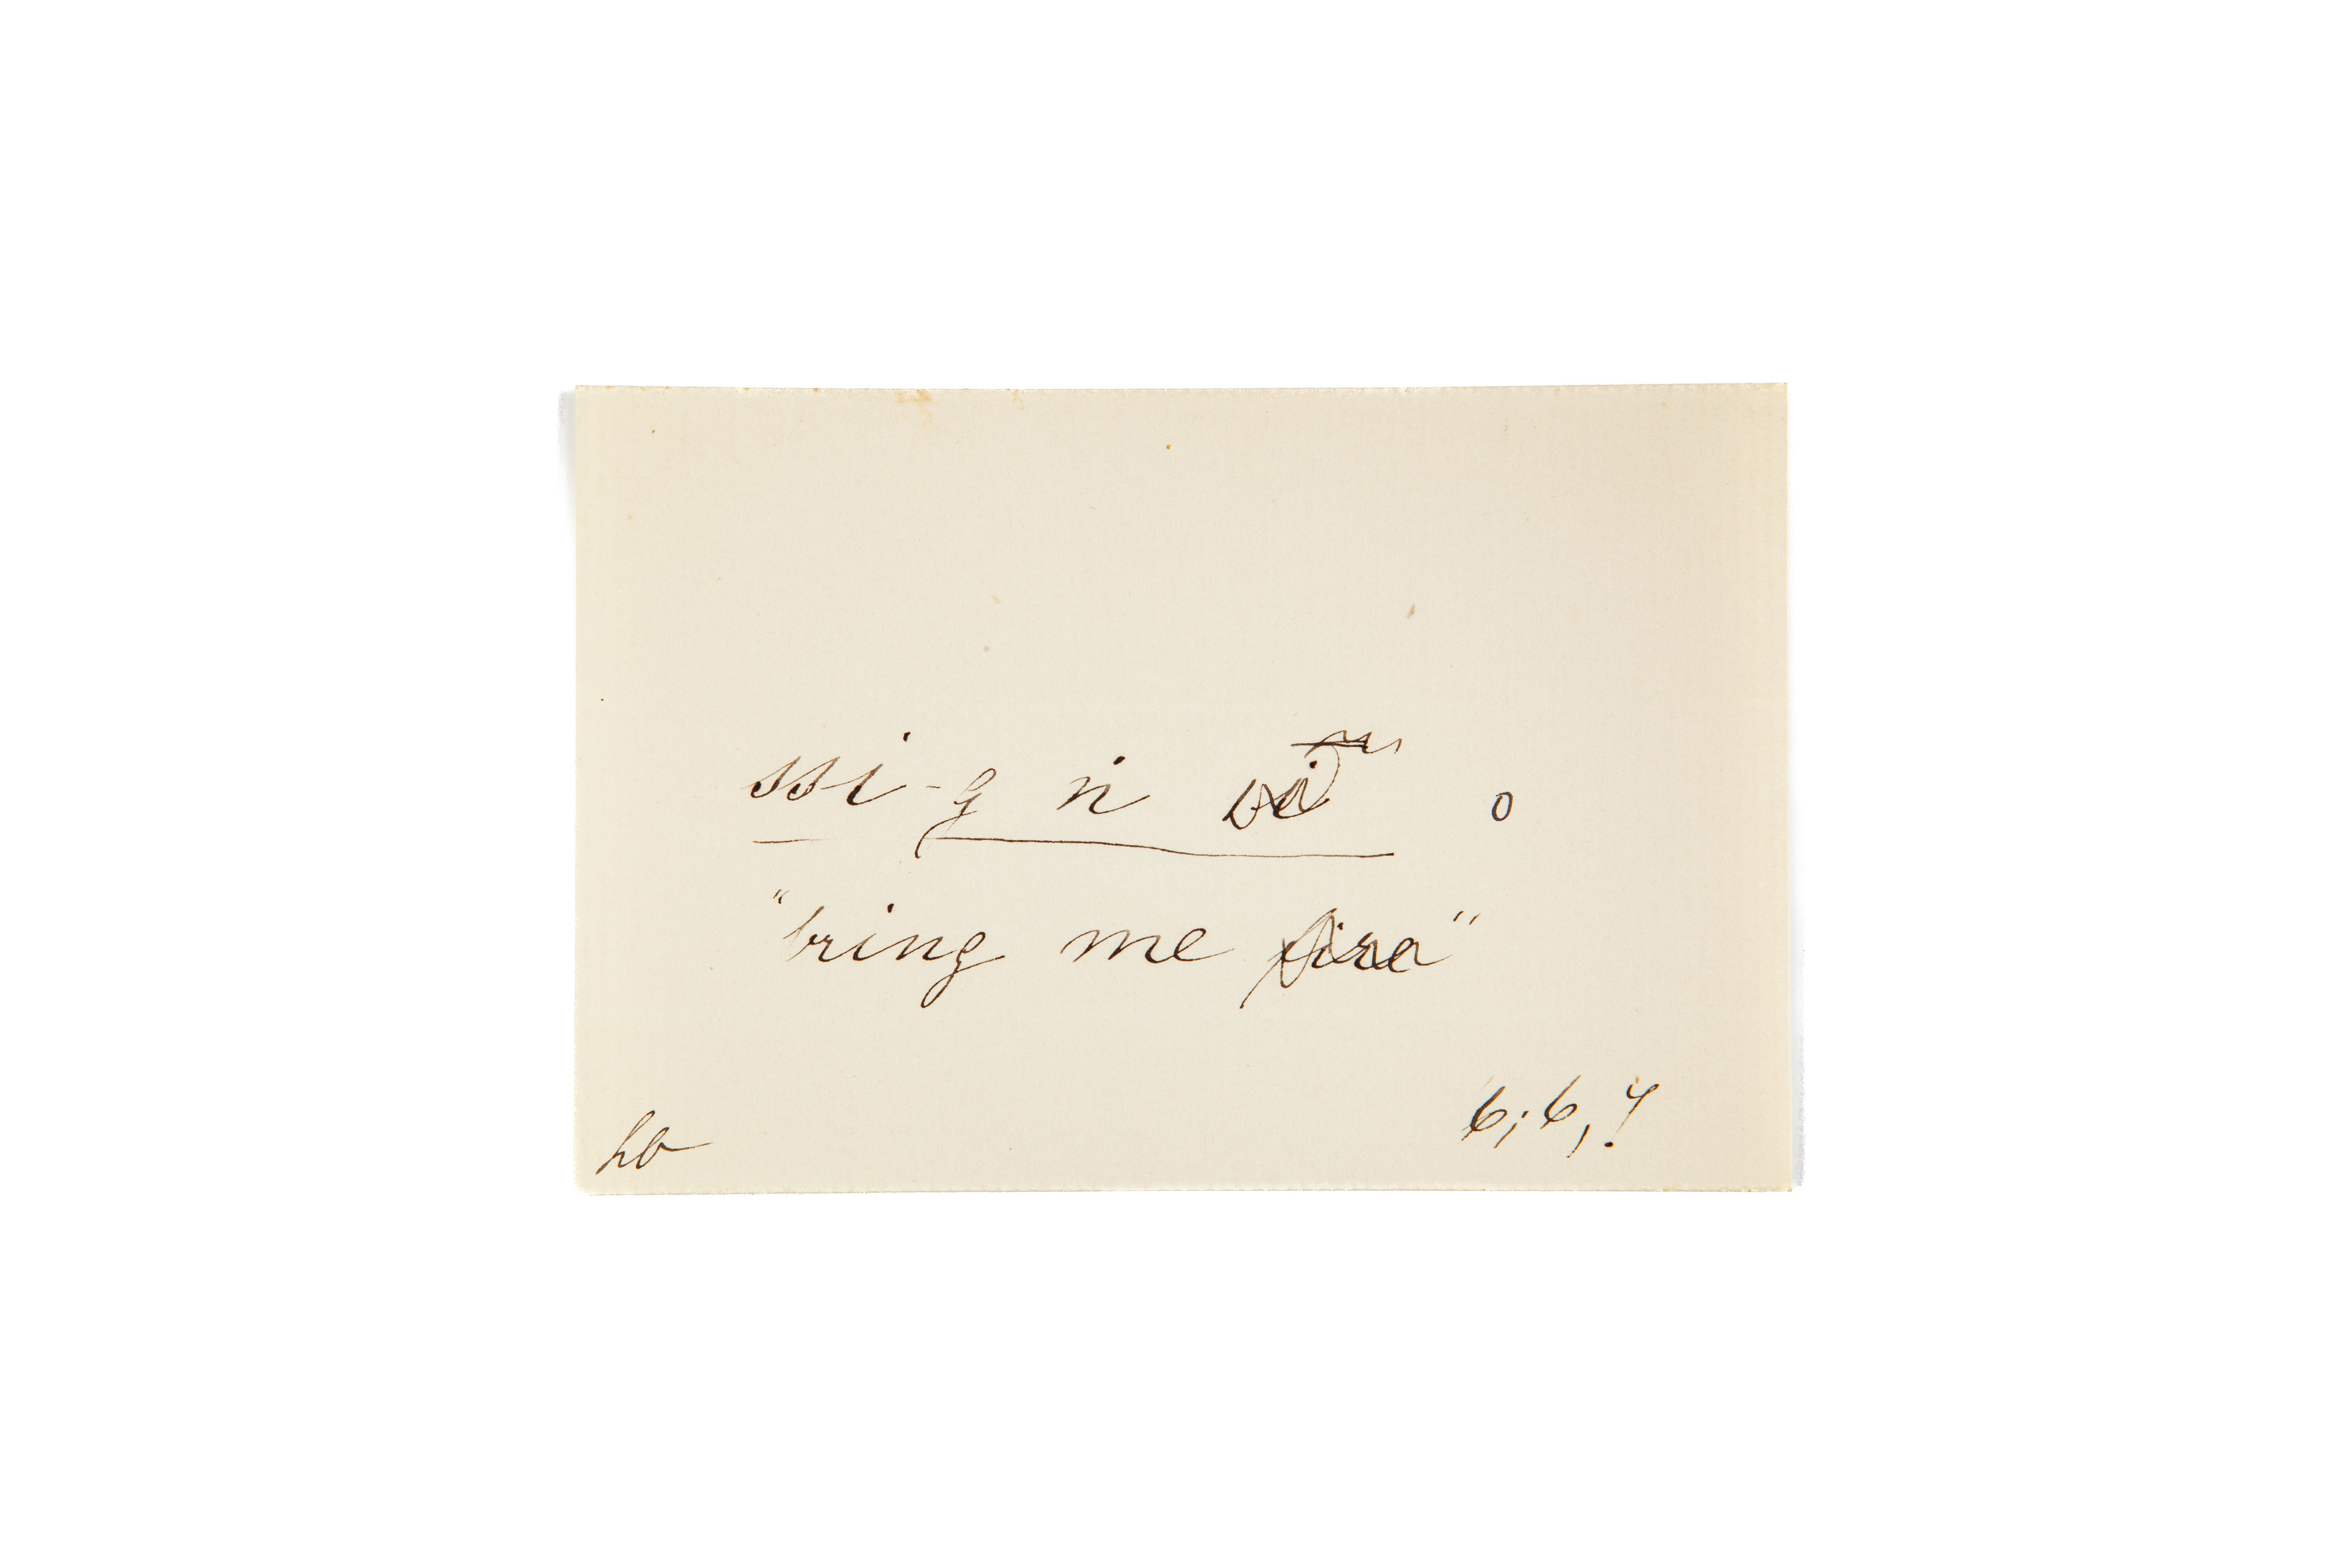 ssi-g ni o
"bring me fire"
ho 6; 6, 7